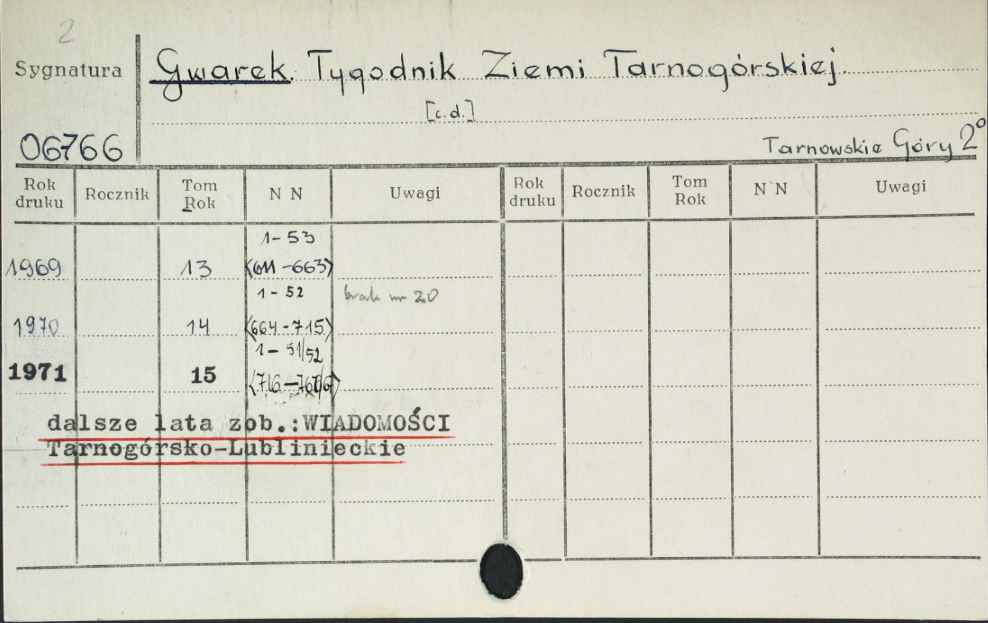 2
Sygnatura
Gwarek. Tygodnik Ziemi Tarnogórskiej.
[c.d.]
06766
Tarnowskie Góry 2°
Rok druku Rocznik Tom Rok N N Uwagi Rok druku Rocznik Tom Rok N N Uwagi
1-53
1969 13 <611-663>
1-52 brak nr 20
1970 14 <664-715>
1-51/52
1971 15
dalsze lata zob.:WIADOMOŚCI
Tarnogórsko-Lublinieckie